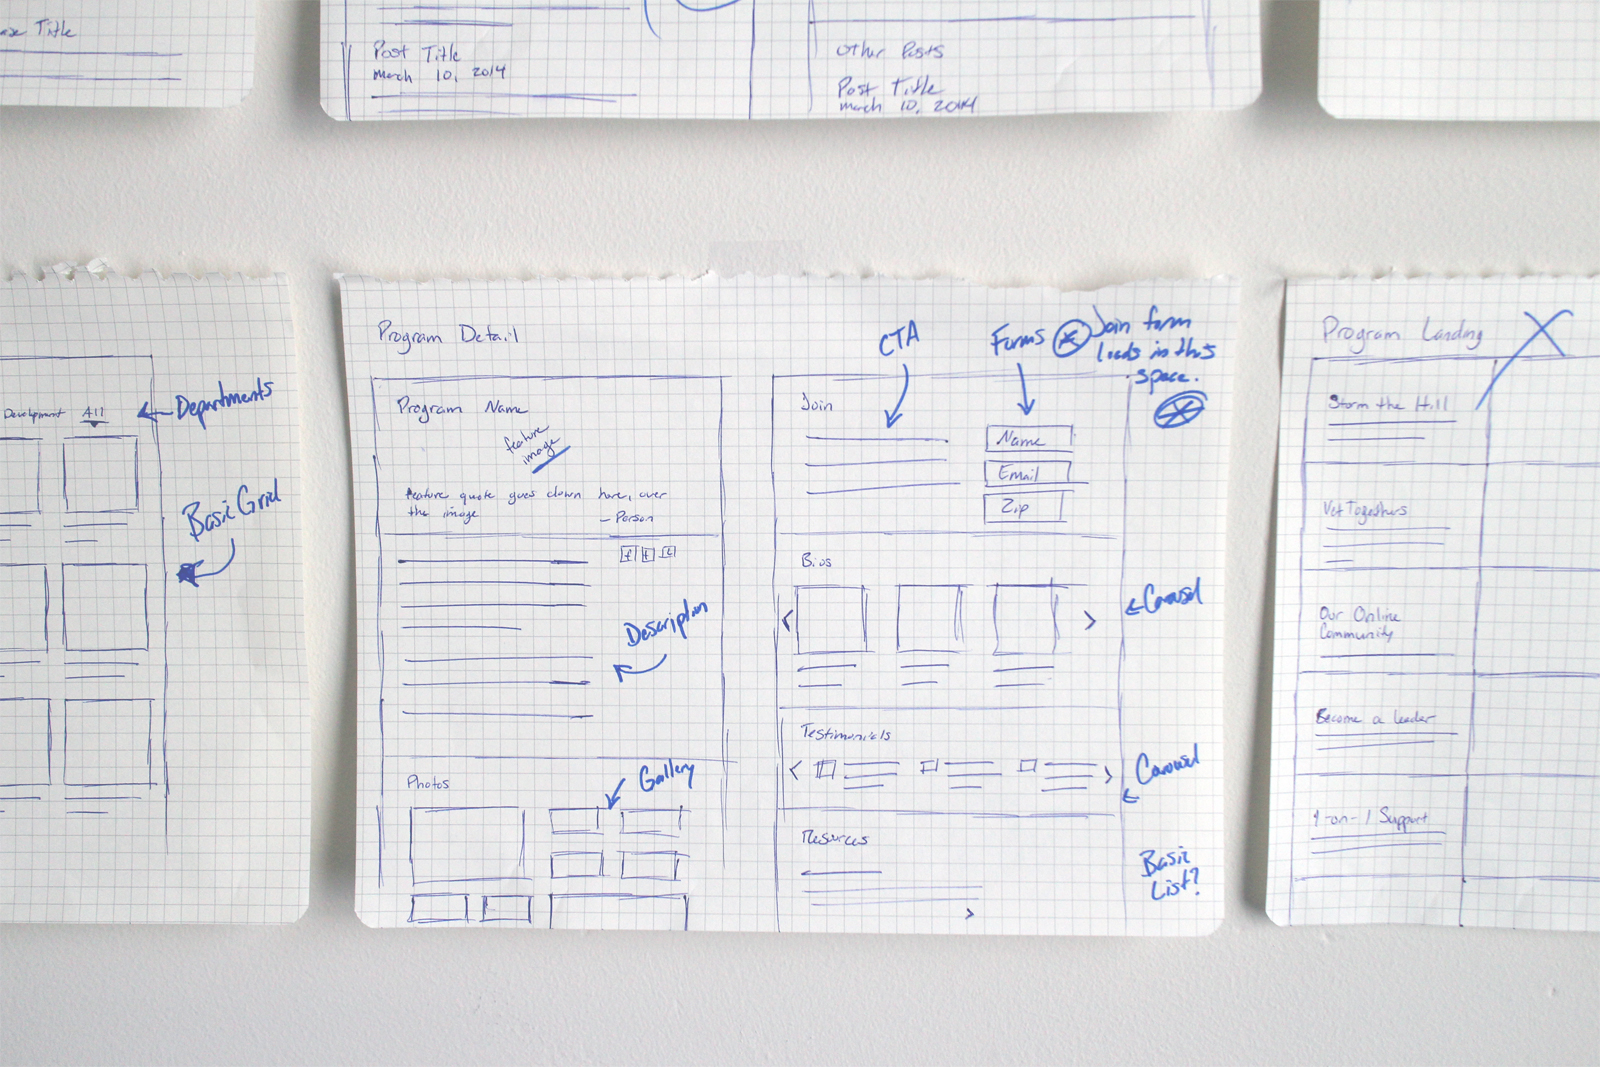 Title
Post Title
March 10, 2014
Other Posts
Post Title
March 10, 2014
Development All
Departments
Basic Grid
Program Detail
Program Name
feature
image
Feature quote goes down here, over
the image
- Person
Description
Photos
Gallery
CTA
Forms
Join form
loads in this
space.
Join
Name
Email
Zip
Bios
Carousel
Testimonials
Carousel
Resources
Basic
List?
Program Landing
Storm the Hill
Vet Togethers
Our Online
Community
Become a leader
1-on-1 Support